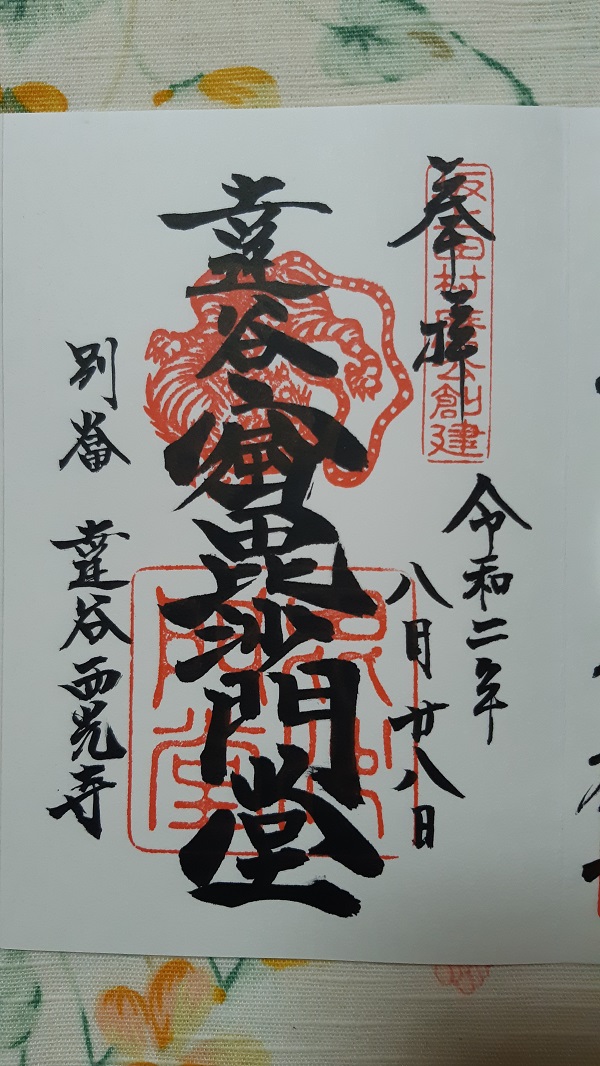 奉拝
坂上田村麿公創建
令和二年
八月廿八日
達谷窟毘沙門堂
毘沙門堂
別當 達谷西光寺